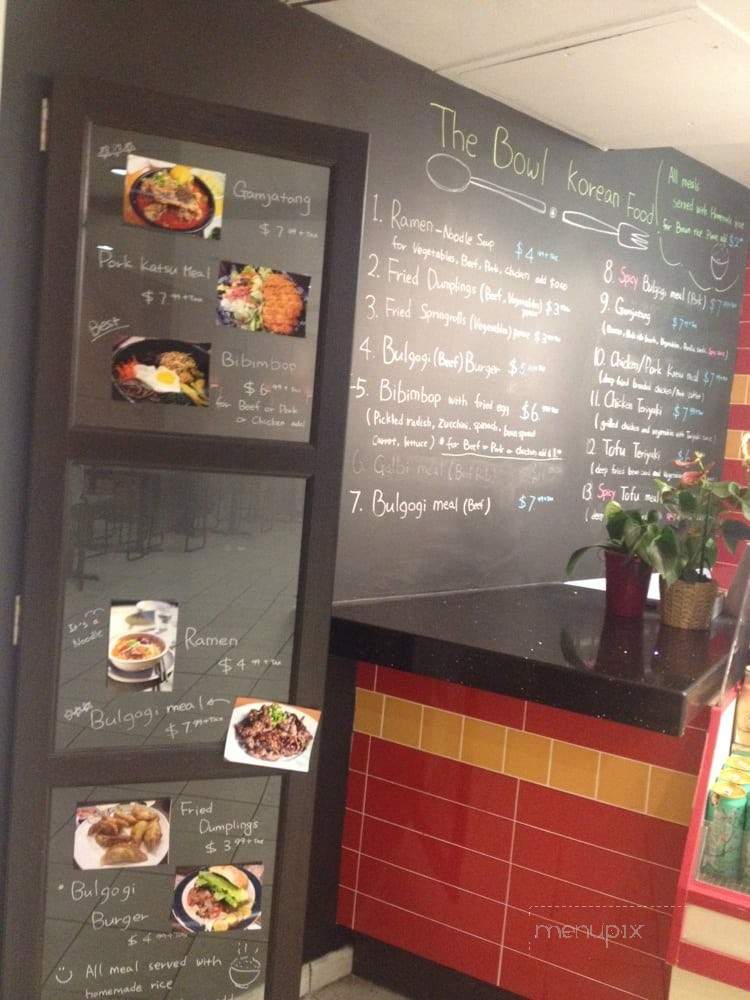 Gamjatang
$7.99+Tax
Pork Katsu Meal
$7.99+Tax
Best
Bibimbop
$6.99+Tax
for Beef or Pork
or Chicken add
It's a
Noodle
Ramen
$4.99+Tax
Bulgogi meal
$7.99+Tax
Fried
Dumplings
$3.99+Tax
• Bulgogi
Burger
$4.99+Tax
All meal served with
homemade rice
The Bowl Korean Food
All meals
served with Homemade rice
for Brown rice Please add $2
1. Ramen-Noodle Soup $4.99+Tax
for Vegetables, Beef, Pork, chicken add
2. Fried Dumplings (Beef, Vegetables) $3
3. Fried Springrolls (Vegetables) $3
4. Bulgogi (Beef) Burger $5
5. Bibimbop with fried egg $6
(Pickled radish, zucchini, spinach, bean sprout
carrot, lettuce) * for Beef or Pork or chicken add $1
6. Galbi meal (Beef Rib)
7. Bulgogi meal (Beef) $7.99+Tax
8. Spicy Bulgogi meal (Pork) $7
9. Gamjatang $7
10. Chicken/Pork Katsu meal $7
(deep fried breaded chicken/pork cutlet)
11. Chicken Teriyaki $7
(grilled chicken and vegetables with Teriyaki sauce)
12. Tofu Teriyaki
(deep fried bean curd and
13. Spicy Tofu meal
(deep
menupix